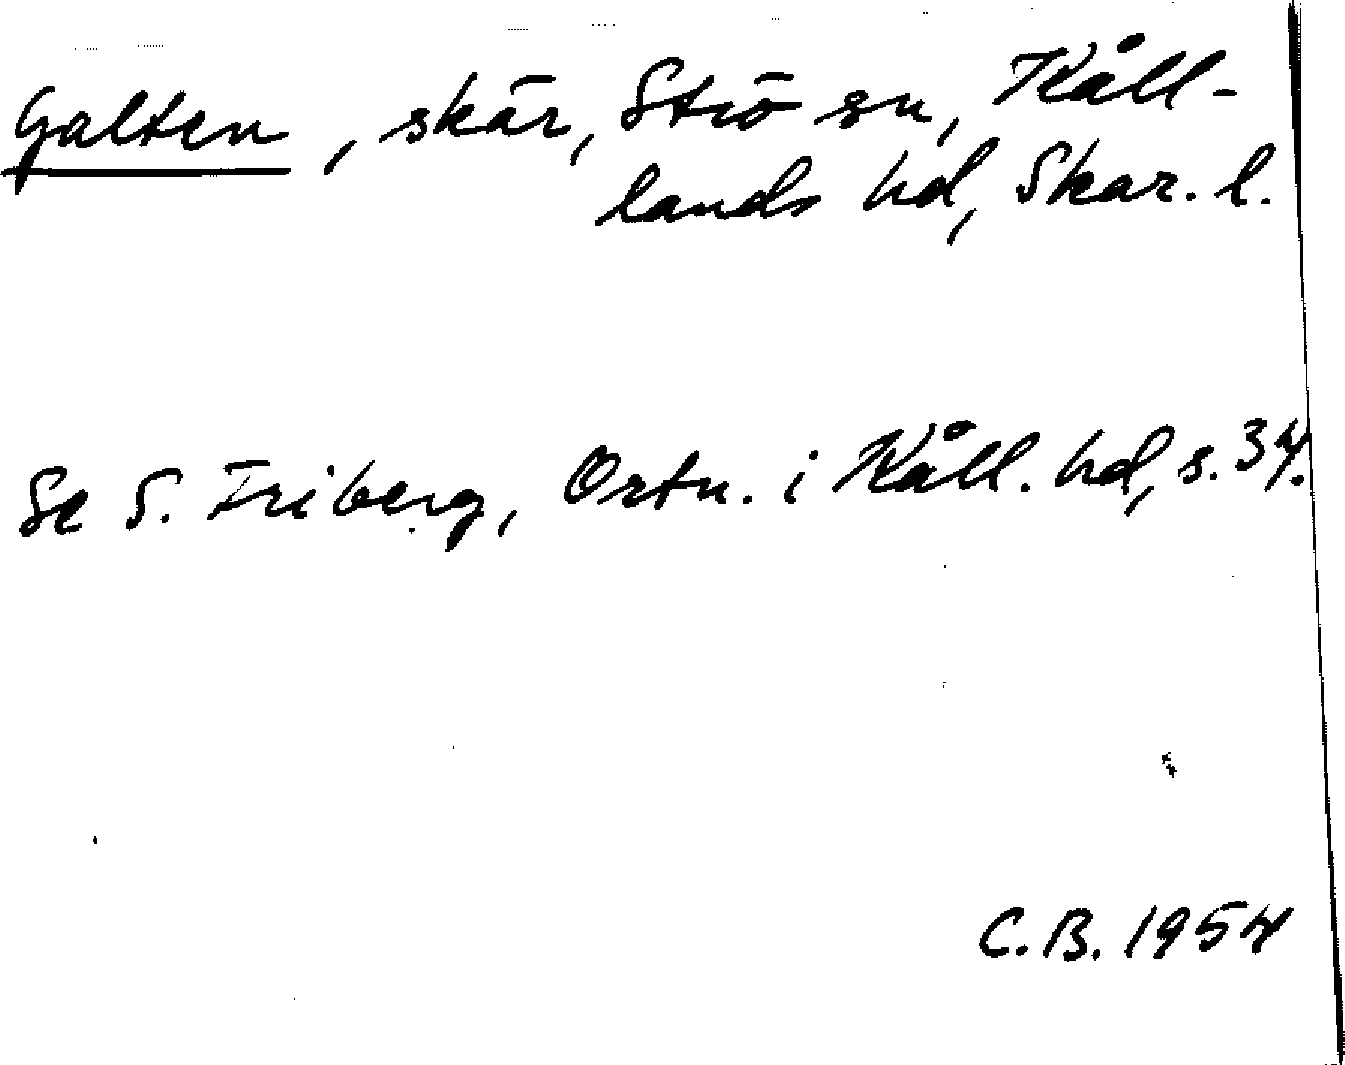 Galten, skär, Strö sn, Kåll-
lands hd, Skar. l.
Se S. Friberg, Ortn. i Kåll. hd, s. 34.
C.B. 1954